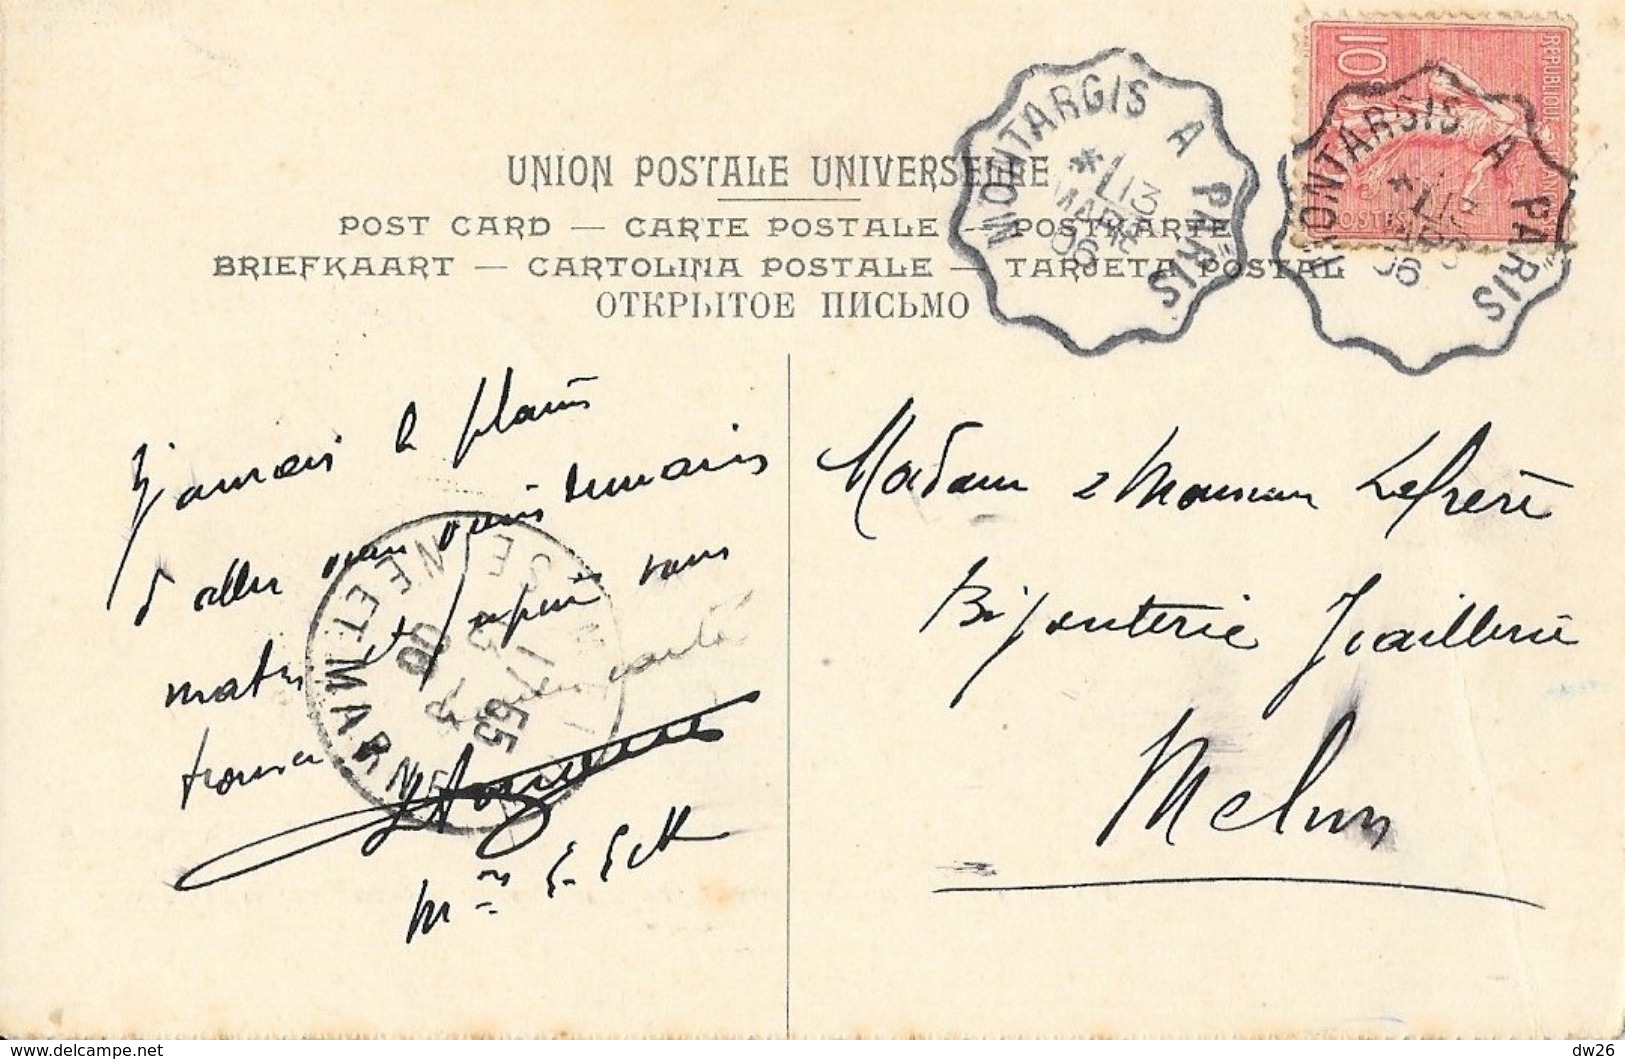 UNION POSTALE UNIVERSELLE
POST CARD — CARTE POSTALE — POSTKARTE
BRIEFKAART — CARTOLINA POSTALE — TARJETA POSTAL
ОТКРЫТОЕ ПИСЬМО
MONTARGIS A PARIS
13
MARS
06
10c
REPUBLIQUE FRANCAISE
POSTES
MONTARGIS A PARIS
13
MARS
06
j'aurais le plaisir
d'aller vous
matin et espère vous
trouver en santé
SEINE ET MARNE
17 55
13 3
06
Madame & Monsieur Lefrère
Bijouterie Joaillerie
Melun
dw26